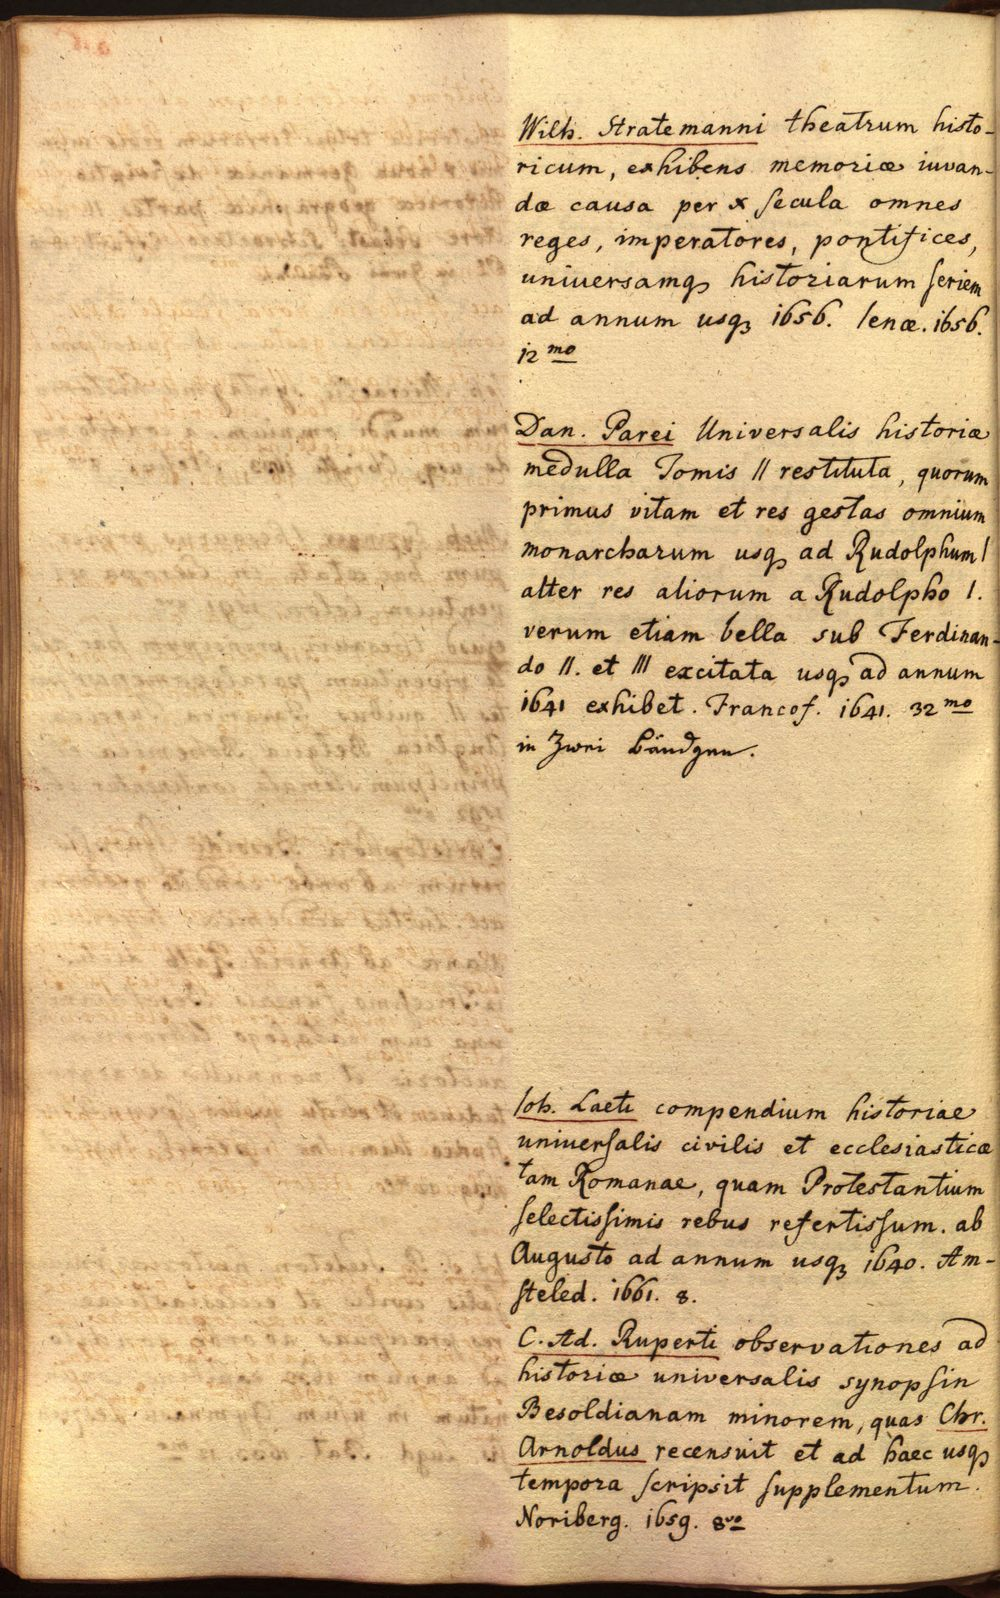 Wilh. Stratemanni theatrum histo-
ricum, exhibens memoriæ iuvan-
dæ causa per x secula omnes
reges, imperatores, pontifices,
universamq; historiarum seriem
ad annum usq; 1656. Ienæ. 1656.
12mo
Dan. Parei Universalis historiæ
medulla Tomis II restituta, quorum
primus vitam et res gestas omnium
monarcharum usq; ad Rudolphum I
alter res aliorum a Rudolpho I.
verum etiam bella sub Ferdinan-
do II. et III excitata usq; ad annum
1641 exhibet. Francof. 1641. 32mo
in Zwei Bändgen.
Ioh. Laeti compendium historiae
universalis civilis et ecclesiasticæ
tam Romanae, quam Protestantium
selectissimis rebus refertissum. ab
Augusto ad annum usq; 1640. Am-
steled. 1661. 8.
C. Ad. Ruperti observationes ad
historiæ universalis synopsin
Besoldianam minorem, quas Chr.
Arnoldus recensuit et ad haec usq;
tempora scripsit supplementum.
Noriberg. 1659. 8vo